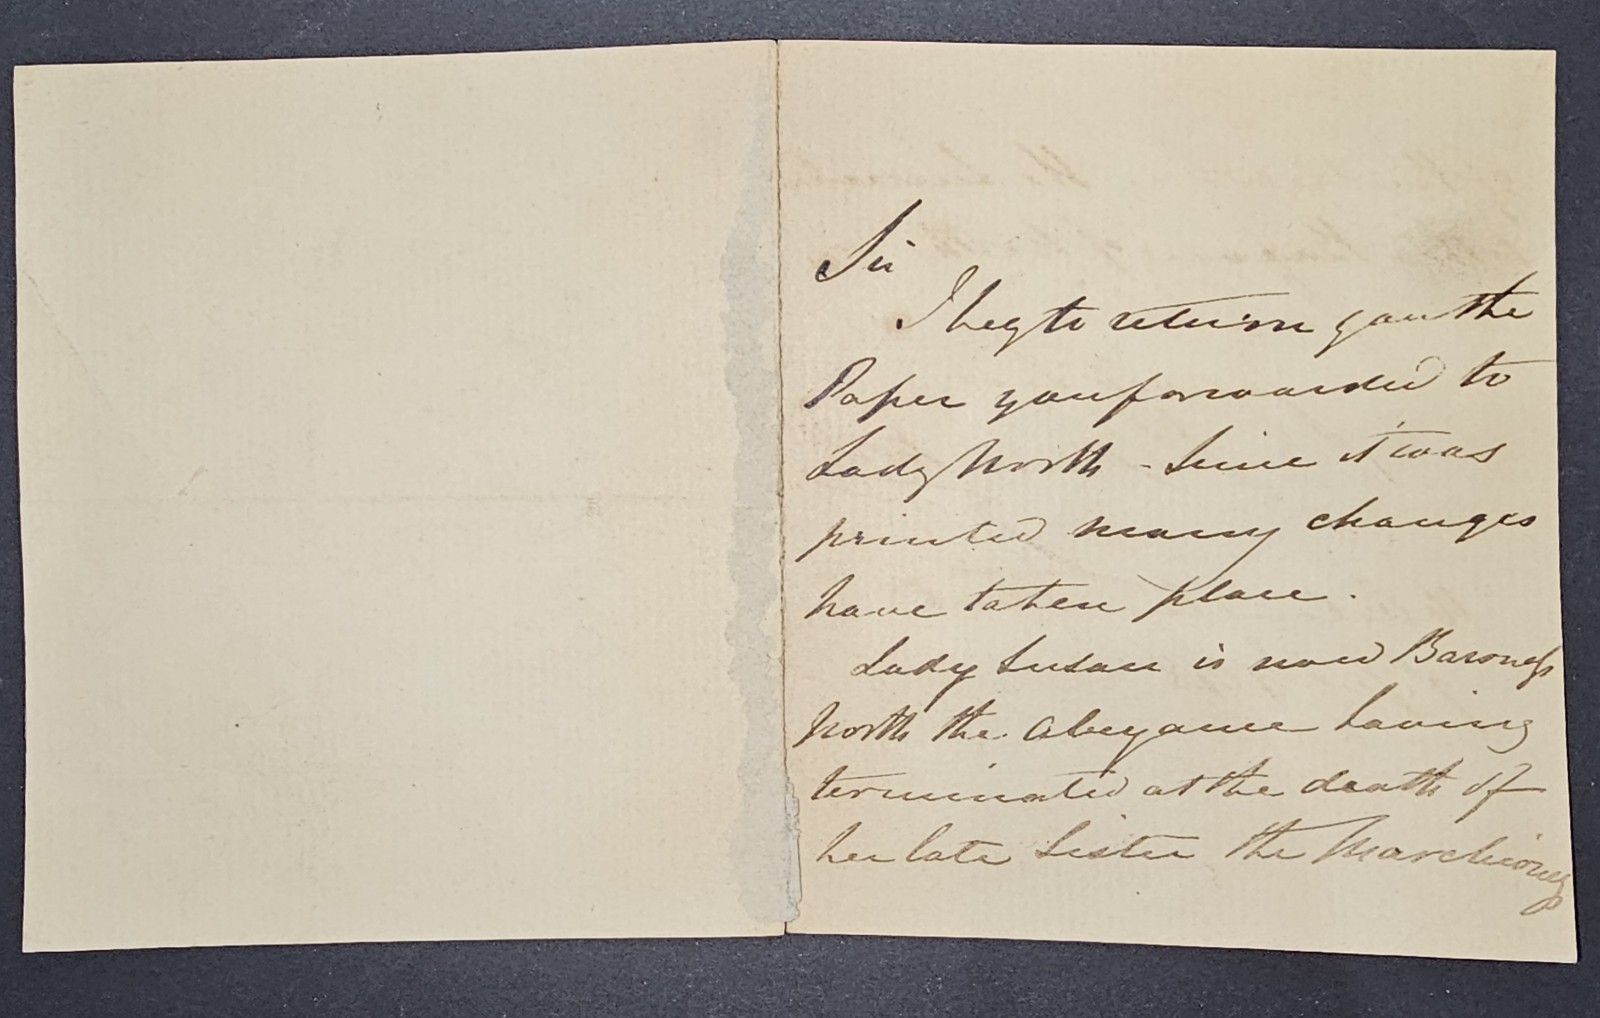 Sir
I beg to return you the
Paper you forwarded to
Lady North - Since it was
printed many changes
have taken place.
Lady Susan is now Baroness
North the abeyance having
terminated at the death of
her late Sister the Marchioness